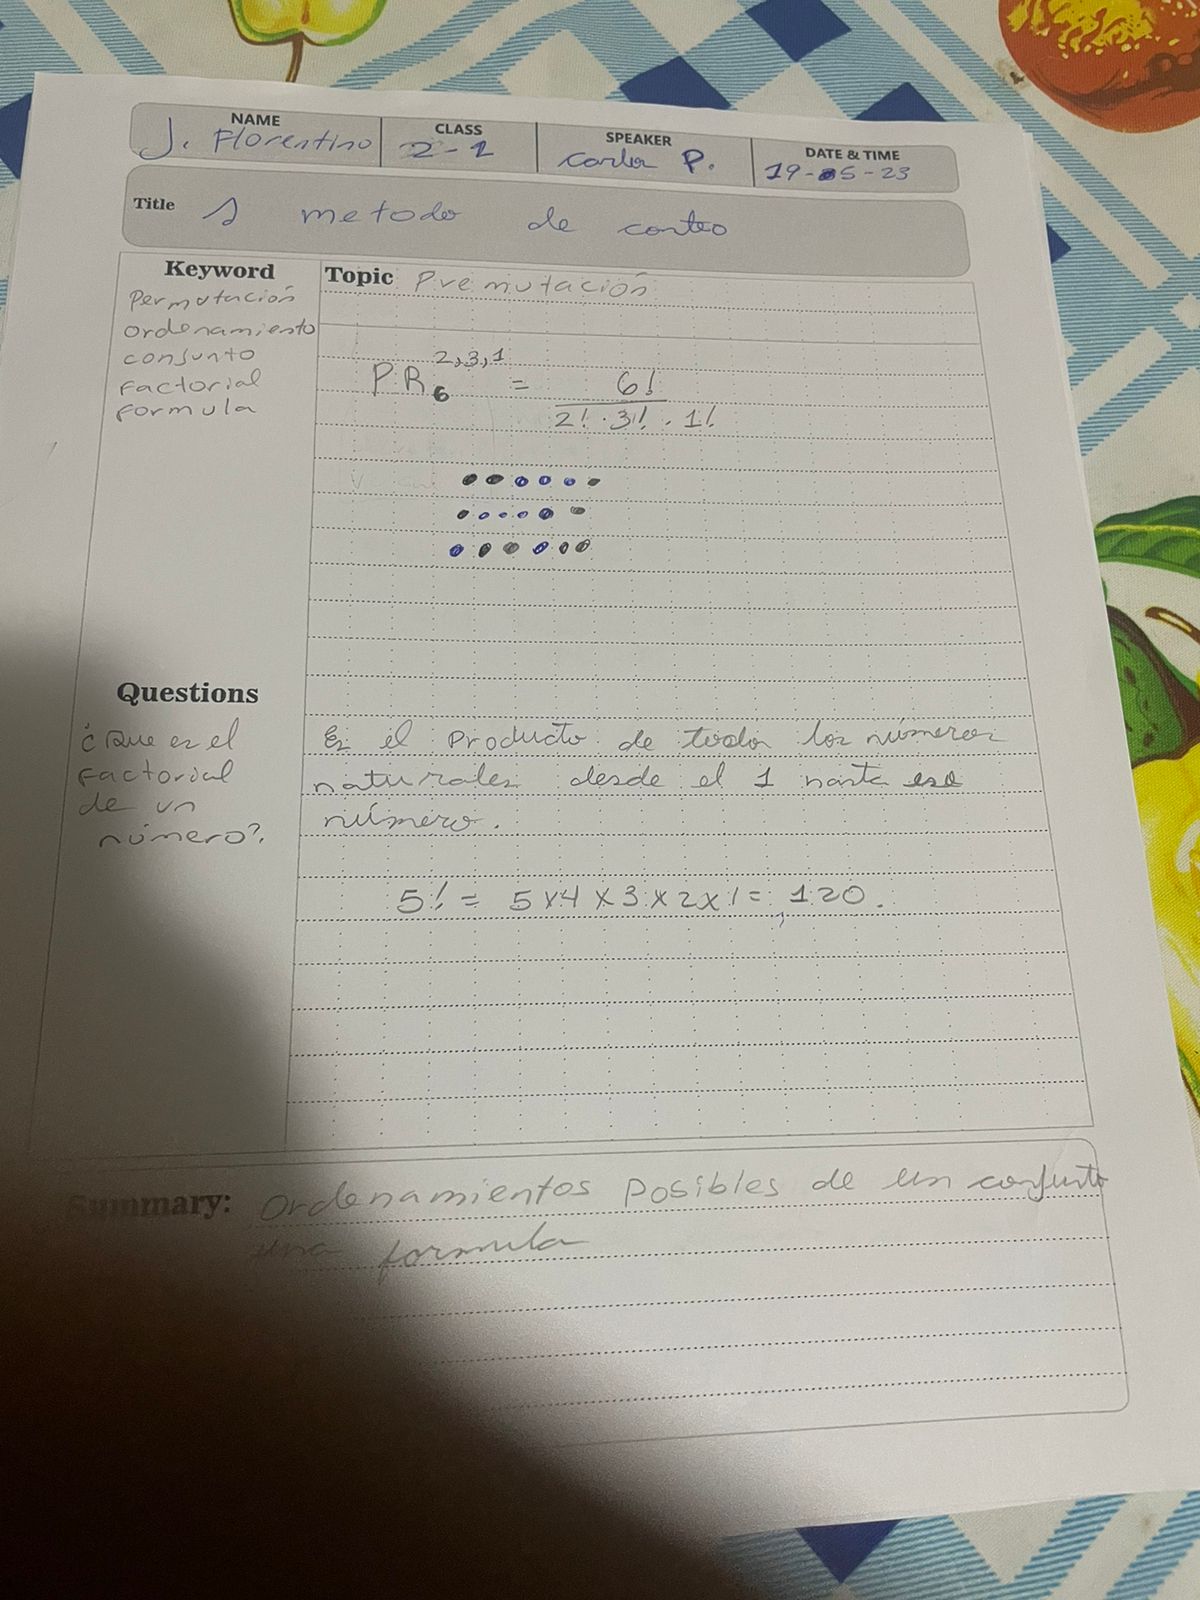 NAME
J. Florentino
CLASS
2-1
SPEAKER
Carlos P.
DATE & TIME
19-05-23
Title 1 metodo de conteo
Keyword
Permutación
ordenamiento
conjunto
Factorial
formula
Topic Premutación
PR₆²,³,¹ = 6! / 2! · 3! · 1!
Questions
¿Que es el
Factorial
de un
número?
Es el Producto de todos los números
naturales desde el 1 hasta ese
número.
5! = 5x4x3x2x1 = 120.
Summary: Ordenamientos Posibles de un conjunto
una formula